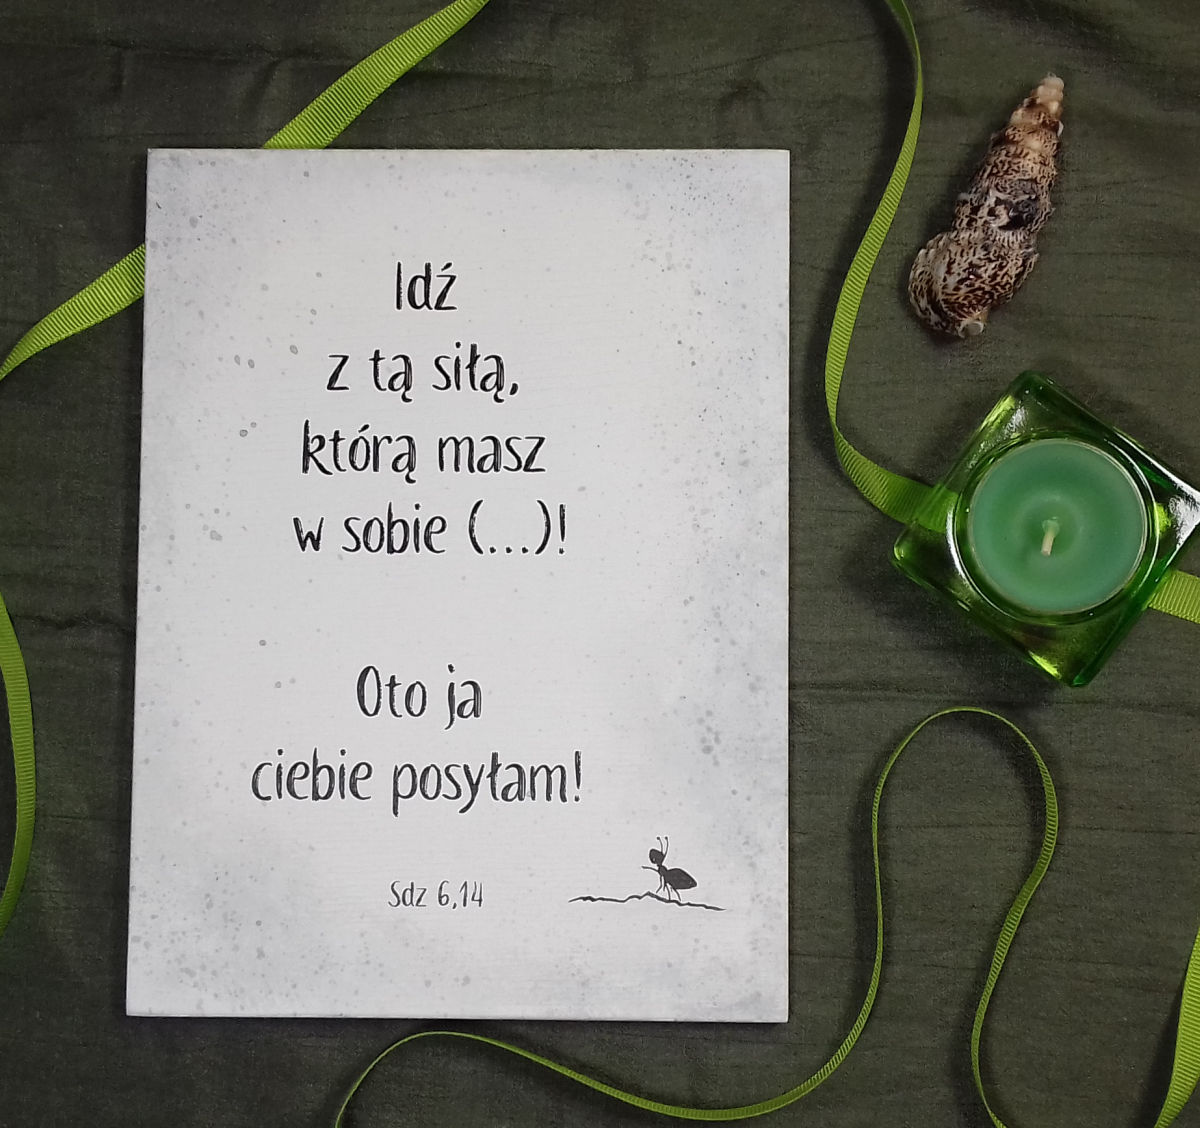 Idź
z tą siłą,
którą masz
w sobie (...)!
Oto ja
ciebie posyłam!
Sdz 6,14